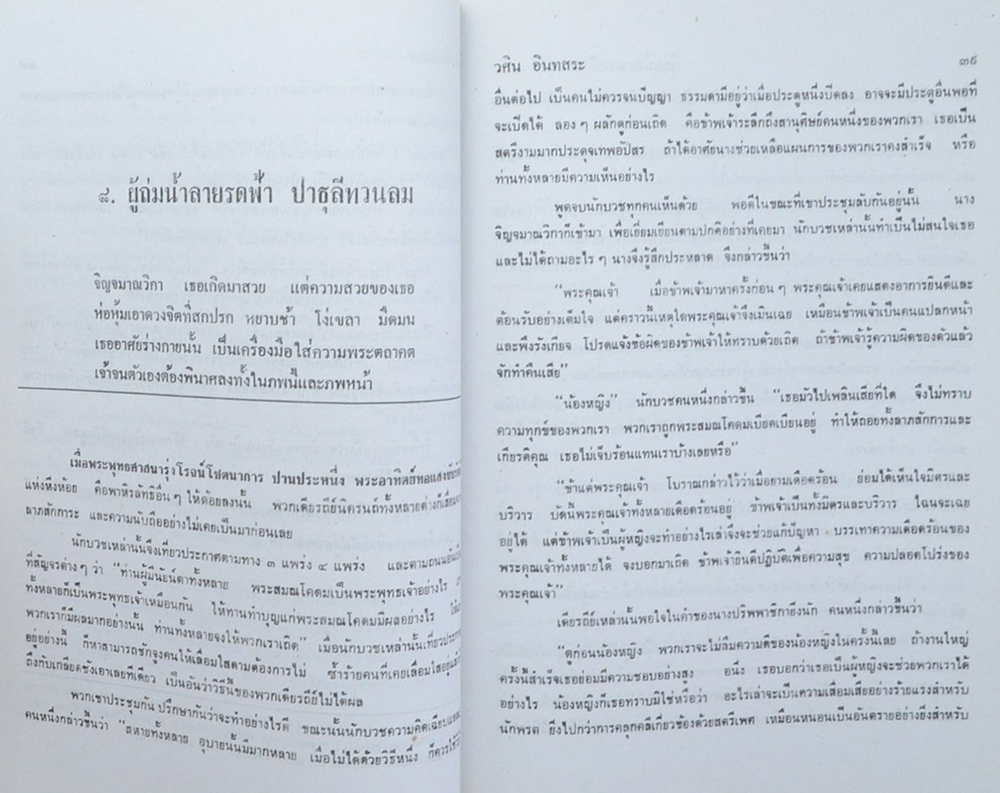 ๘. ผู้ถ่มน้ำลายรดฟ้า ปาธุลีทวนลม
จิญจมาณวิกา เธอเกิดมาสวย แต่ความสวยของเธอ
ห่อหุ้มเอาดวงจิตที่สกปรก หยาบช้า โง่เขลา มืดมน
เธออาศัยร่างกายนั้น เป็นเครื่องมือใส่ความพระตถาคต
เจ้าจนตัวเองต้องพินาศลงทั้งในภพนี้และภพหน้า
เมื่อพระพุทธศาสนารุ่งโรจน์โชตนาการ ปานประหนึ่ง พระอาทิตย์ทอแสงข่มรัศมี
แห่งหิ่งห้อย คือพาหิรลัทธิอื่นๆ ให้ด้อยลงนั้น พวกเดียรถีย์นิครนถ์ทั้งหลายต่างก็เสื่อมจาก
ลาภสักการะ และความนับถืออย่างไม่เคยเป็นมาก่อนเลย
นักบวชเหล่านั้นจึงเที่ยวประกาศตามทาง ๓ แพร่ง ๔ แพร่ง และตามถนนหนทาง
ที่สัญจรต่างๆ ว่า "ท่านผู้มีนัยน์ตาทั้งหลาย พระสมณโคดมเป็นพระพุทธเจ้าอย่างไร
ทั้งหลายก็เป็นพระพุทธเจ้าเหมือนกัน ให้ทานทำบุญแก่พระสมณโคดมมีผลอย่างไร
พวกเราก็มีผลมากอย่างนั้น ท่านทั้งหลายจงให้พวกเราเถิด" เมื่อนักบวชเหล่านั้นเที่ยวประกาศ
อยู่อย่างนี้ ก็หาสามารถชักจูงคนให้เลื่อมใสตามต้องการไม่ ซ้ำร้ายคนที่เคยเลื่อมใสอยู่แล้ว
ถึงกับเกลียดชังเอาเลยทีเดียว เป็นอันว่าวิธีนี้ของพวกเดียรถีย์ไม่ได้ผล
พวกเขาประชุมกัน ปรึกษากันว่าจะทำอย่างไรดี ขณะนั้นนักบวชความคิดเฉียบแหลม
คนหนึ่งกล่าวขึ้นว่า "สหายทั้งหลาย อุบายนั้นมีมากหลาย เมื่อไม่ได้ด้วยวิธีหนึ่ง ก็ควรใช้วิธี
วศิน อินทสระ ๓๙
อื่นต่อไป เป็นคนไม่ควรจนปัญญา ธรรมดามีอยู่ว่าเมื่อประตูหนึ่งปิดลง อาจจะมีประตูอื่นพอที่
จะเปิดได้ ลองๆ ผลักดูก่อนเถิด คือข้าพเจ้าระลึกถึงสานุศิษย์คนหนึ่งของพวกเรา เธอเป็น
สตรีงามมากประดุจเทพอัปสร ถ้าได้อาศัยนางช่วยเหลือแผนการของพวกเราคงสำเร็จ หรือ
ท่านทั้งหลายมีความเห็นอย่างไร
พูดจบนักบวชทุกคนเห็นด้วย พอดีในขณะที่เขาประชุมลับกันอยู่นั้น นาง
จิญจมาณวิกาก็เข้ามา เพื่อเยี่ยมเยียนตามปกติอย่างที่เคยมา นักบวชเหล่านั้นทำเป็นไม่สนใจเธอ
และไม่ได้ถามอะไรๆ นางจึงรู้สึกประหลาด จึงกล่าวขึ้นว่า
"พระคุณเจ้า เมื่อข้าพเจ้ามาหาครั้งก่อนๆ พระคุณเจ้าเคยแสดงอาการยินดีและ
ต้อนรับอย่างเต็มใจ แต่คราวนี้เหตุใดพระคุณเจ้าจึงเมินเฉย เหมือนข้าพเจ้าเป็นคนแปลกหน้า
และพึงรังเกียจ โปรดแจ้งข้อผิดของข้าพเจ้าให้ทราบด้วยเถิด ถ้าข้าพเจ้ารู้ความผิดของตัวแล้ว
จักทำคืนเสีย"
"น้องหญิง" นักบวชคนหนึ่งกล่าวขึ้น "เธอมัวไปเพลินเสียที่ใด จึงไม่ทราบ
ความทุกข์ของพวกเรา พวกเราถูกพระสมณโคดมเบียดเบียนอยู่ ทำให้ถอยทั้งลาภสักการและ
เกียรติคุณ เธอไม่เจ็บร้อนแทนเราบ้างเลยหรือ"
"ข้าแต่พระคุณเจ้า โบราณกล่าวไว้ว่าเมื่อยามเดือดร้อน ย่อมได้เห็นใจมิตรและ
บริวาร บัดนี้พระคุณเจ้าทั้งหลายเดือดร้อนอยู่ ข้าพเจ้าเป็นทั้งมิตรและบริวาร ไฉนจะเฉย
อยู่ได้ แต่ข้าพเจ้าเป็นผู้หญิงจะทำอย่างไรเล่าจึงจะช่วยแก้ปัญหา บรรเทาความเดือดร้อนของ
พระคุณเจ้าทั้งหลายได้ จงบอกมาเถิด ข้าพเจ้ายินดีปฏิบัติเพื่อความสุข ความปลอดโปร่งของ
พระคุณเจ้า"
เดียรถีย์เหล่านั้นพอใจในคำของนางปริพพาชิกายิ่งนัก คนหนึ่งกล่าวขึ้นว่า
"ดูก่อนน้องหญิง พวกเราจะไม่ลืมความดีของน้องหญิงในครั้งนี้เลย ถ้างานใหญ่
ครั้งนี้สำเร็จเธอย่อมมีความชอบอย่างสูง อนึ่ง เธอบอกว่าเธอเป็นผู้หญิงจะช่วยพวกเราได้
อย่างไร น้องหญิงก็เธอทราบมิใช่หรือว่า อะไรเล่าจะเป็นความเสื่อมเสียอย่างร้ายแรงสำหรับ
นักพรต ยิ่งไปกว่าการคลุกคลีเกี่ยวข้องด้วยสตรีเพศ เหมือนหนอนเป็นอันตรายอย่างยิ่งสำหรับ